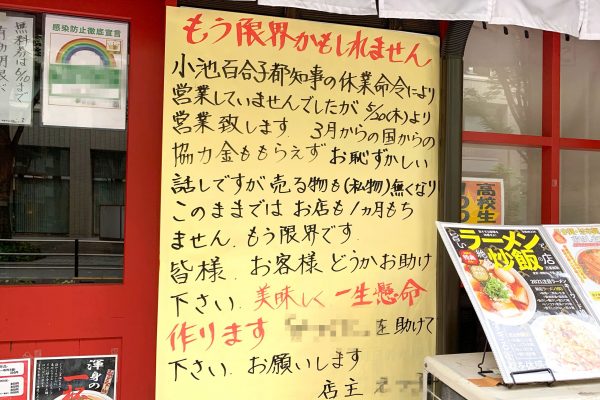 もう限界かもしれません
小池百合子都知事の休業命令により
営業していませんでしたが 5/20(木)より
営業致します 3月からの国からの
協力金ももらえず お恥ずかしい
話しですが 売る物も(私物)無くなり
このままでは お店も1ヵ月もち
ません. もう限界です.
皆様. お客様 どうかお助け
下さい. 美味しく 一生懸命
作ります を助けて
下さい. お願いします
店主
感染防止徹底宣言
無料券は5/10まで
高校生
ラーメン
炒飯
の店
渾身の
一杯